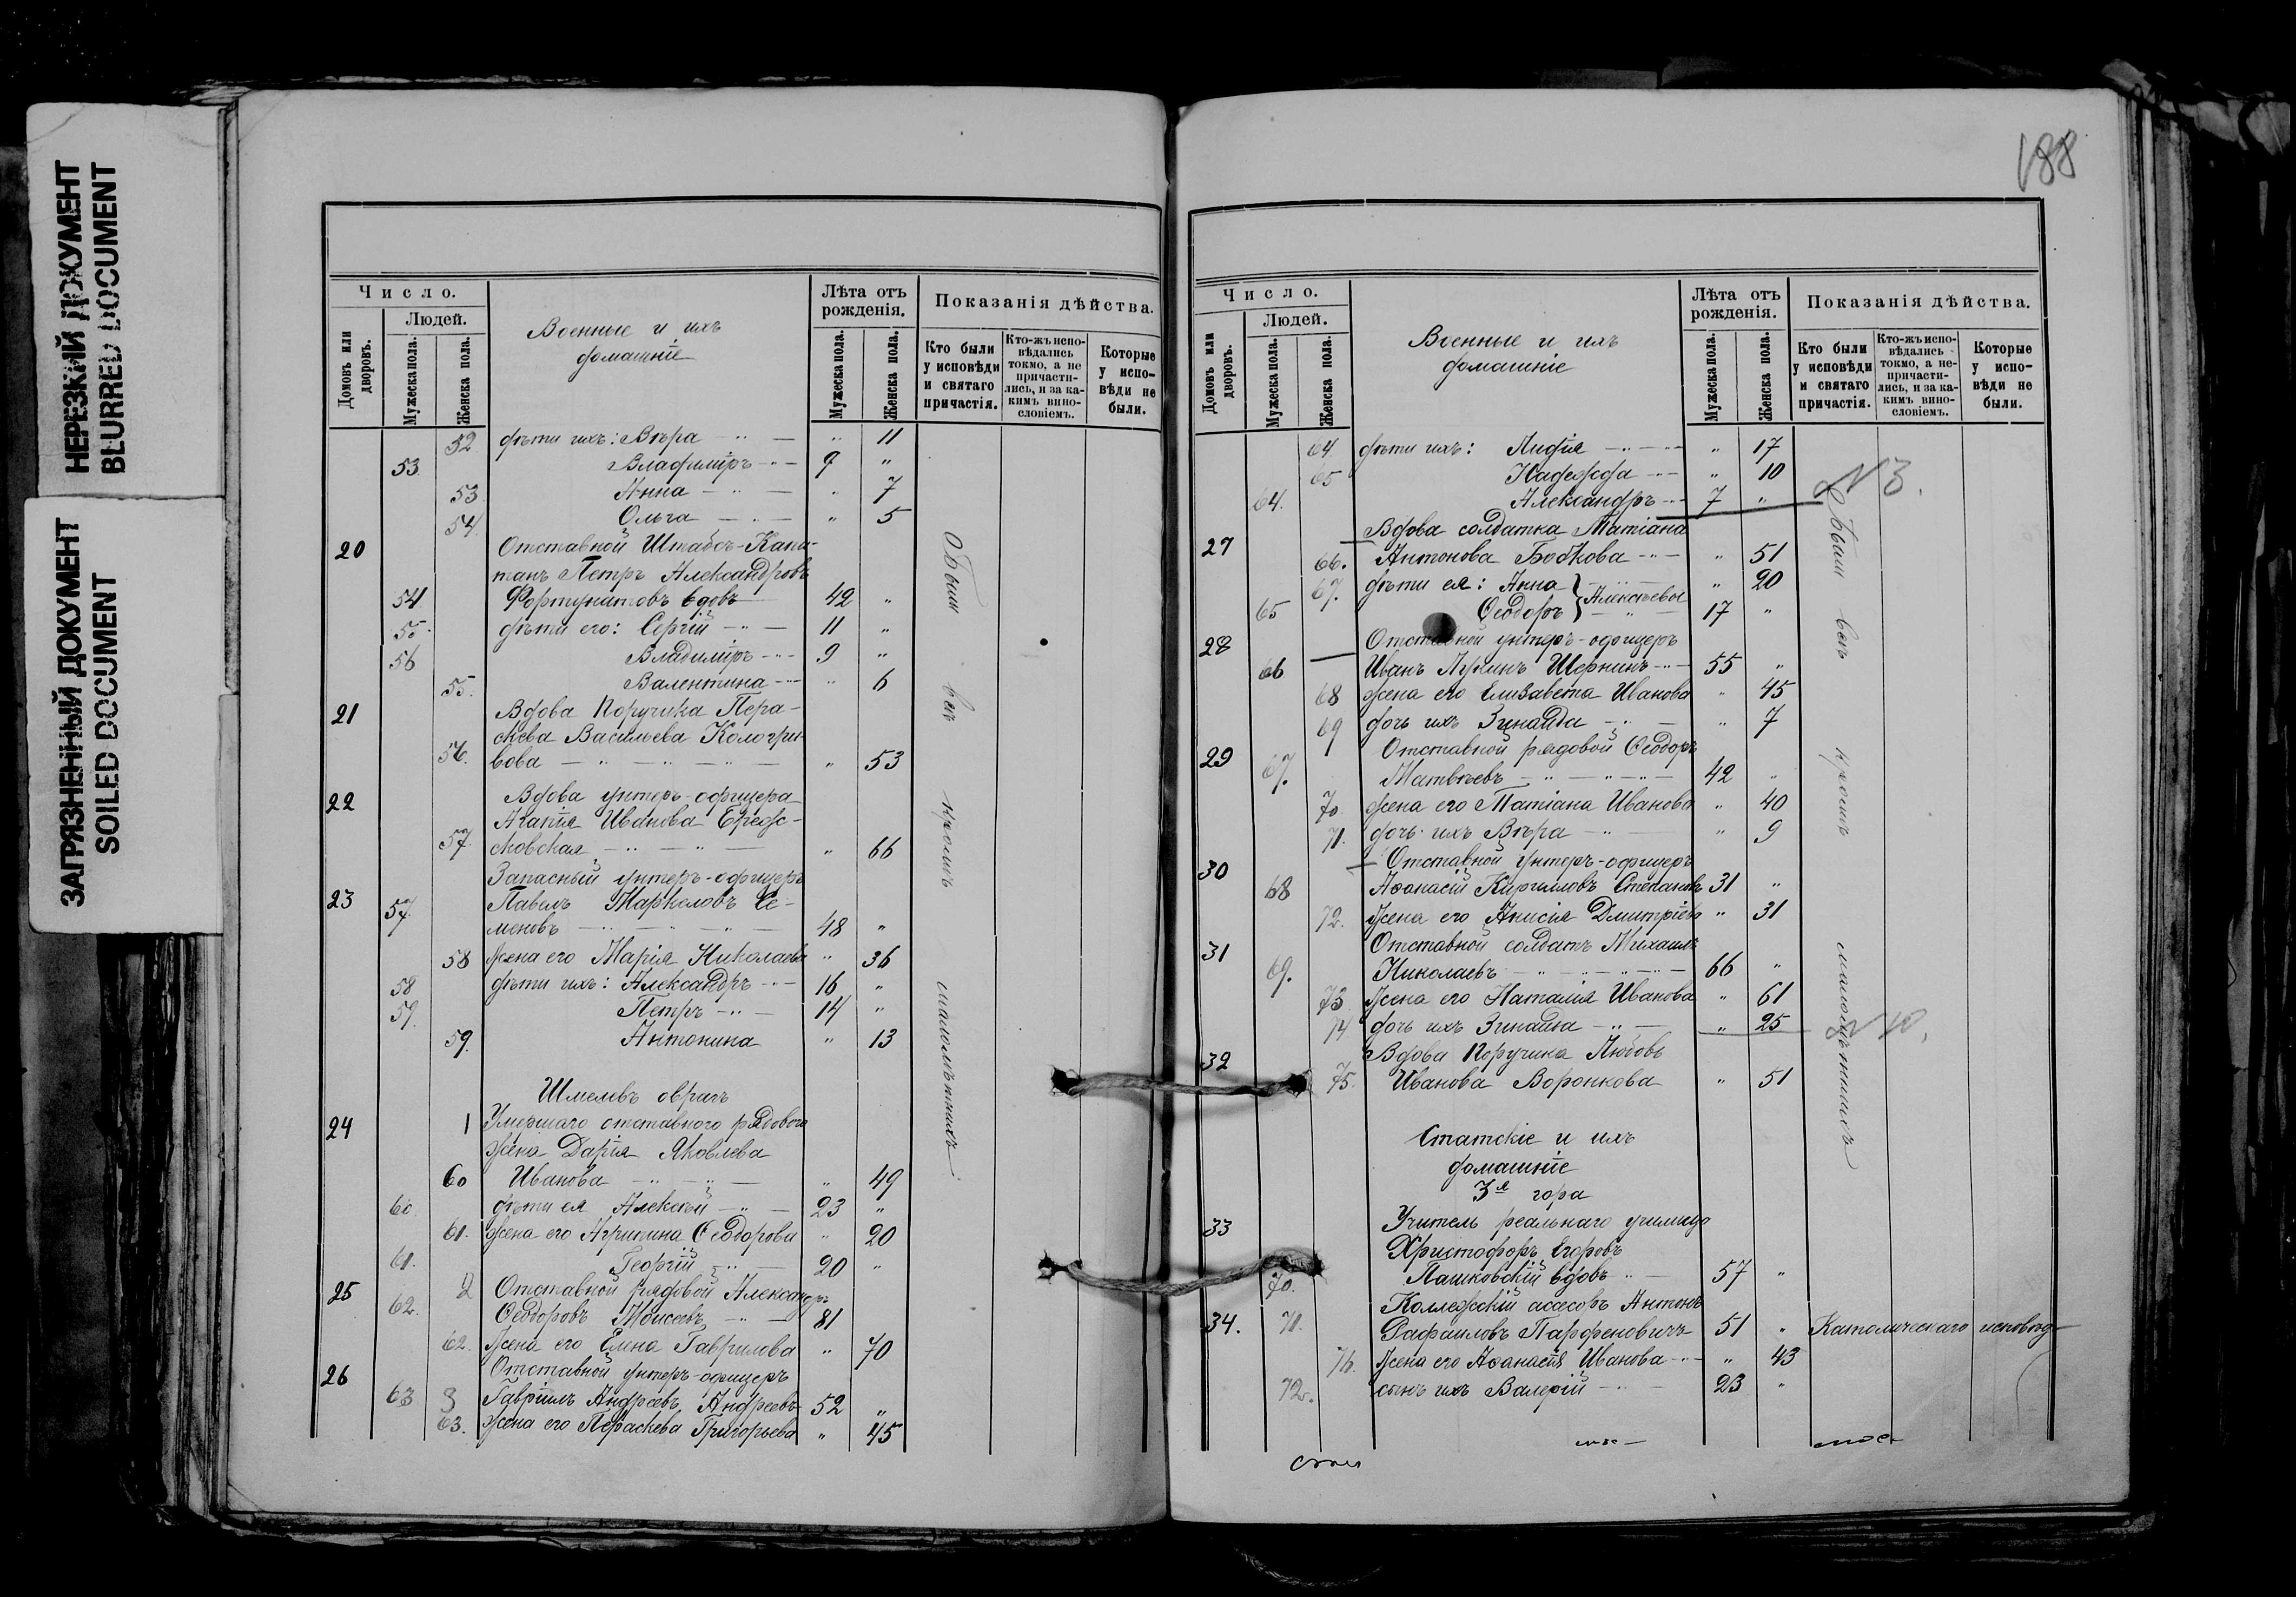 НЕРЕЗКИЙ ДОКУМЕНТ
BLURRED DOCUMENT
ЗАГРЯЗНЕННЫЙ ДОКУМЕНТ
SOILED DOCUMENT
Число.
Домовъ или дворовъ.
Людей.
Мужеска пола.
Женска пола.
Военные и ихъ
домашніе
Лѣта отъ рожденія.
Мужеска пола.
Женска пола.
Показанія дѣйства.
Кто были у исповѣди и святаго причастія.
Кто-жъ исповѣдались токмо, а не причастились, и за какимъ винословіемъ.
Которые у исповѣди не были.
52 дѣти ихъ: Вѣра " 11
53 Владиміръ 9 "
53 Анна " 7
54 Ольга " 5
20 Отставной Штабсъ-Капи-
танъ Петръ Александровъ
54 Фортунатовъ вдовъ 42 "
55 дѣти его: Сергій 11 "
56 Владиміръ 9 "
55. Валентина " 6
21 Вдова Поручика Пера-
скева Васильева Кологри-
56. вова " 53
22 Вдова унтеръ-офицера
Агапія Иванова
57. " 66
Запасный унтеръ-офицеръ
23 57. Павелъ Маркеловъ Се-
меновъ 48 "
58 Жена его Марія Николаева " 36
58 дѣти ихъ: Александръ 16 "
59. Петръ 14 "
59. Антонина " 13
Шмелевъ оврагъ
24 1 Умершаго отставного рядового
жена Дарія Яковлева
60 Иванова " 49
60. дѣти ея Алексѣй 23 "
61. жена его Агрипина Ѳеодорова " 20
61. Георгій 20 "
25 2 Отставной рядовой Александръ
62. Ѳеодоровъ Моисеевъ 81
62. Жена его Елена Гаврилова " 70
26 Отставной унтеръ-офицеръ
63 3 Гавріилъ Андреевъ Андреевъ 52 "
63. жена его Пераскева Григорьева " 45
Обыли всѣ кромѣ малолѣтнихъ
188
Число.
Домовъ или дворовъ.
Людей.
Мужеска пола.
Женска пола.
Военные и ихъ
домашніе
Лѣта отъ рожденія.
Мужеска пола.
Женска пола.
Показанія дѣйства.
Кто были у исповѣди и святаго причастія.
Кто-жъ исповѣдались токмо, а не причастились, и за какимъ винословіемъ.
Которые у исповѣди не были.
64 дѣти ихъ: Лидія " 17
65 Надежда " 10
64. Александръ 7 "
№ 3.
27 Вдова солдатка Татіана
66. Антонова Бобкова " 51
67. дѣти ея: Анна } Алексѣевы " 20
65 Ѳеодоръ 17 "
28 Отставной унтеръ-офицеръ
66 Иванъ Лукинъ 55 "
68 жена его Елизавета Иванова " 45
69 дочь ихъ Зинаида " 7
29 Отставной рядовой Ѳеодоръ
67. Матвѣевъ 42 "
70 жена его Татіана Иванова " 40
71. дочь ихъ Вѣра " 9
30 Отставной унтеръ-офицеръ
68 Аѳанасій Кирилловъ Степановъ 31 "
72. Жена его Анисія Дмитріева " 31
31 Отставной солдатъ Михаилъ
69. Николаевъ 66 "
73 Жена его Наталія Иванова " 61
74 дочь ихъ Зинаида " 25
№ 10.
32 Вдова Поручика Любовь
75. Иванова Воронкова " 51
Обыли всѣ кромѣ малолѣтнихъ
Статскіе и ихъ
домашніе
3я гора
33 Учитель реальнаго училища
Христофоръ Егоровъ
70. Пашковскій вдовъ 57 "
Коллежскій асесоръ Антонъ
34. 71. Рафаиловъ Парфеновичъ 51 " Католическаго исповѣд-
76. Жена его Аѳанасія Иванова " 43
72. сынъ ихъ Валерій 23 "